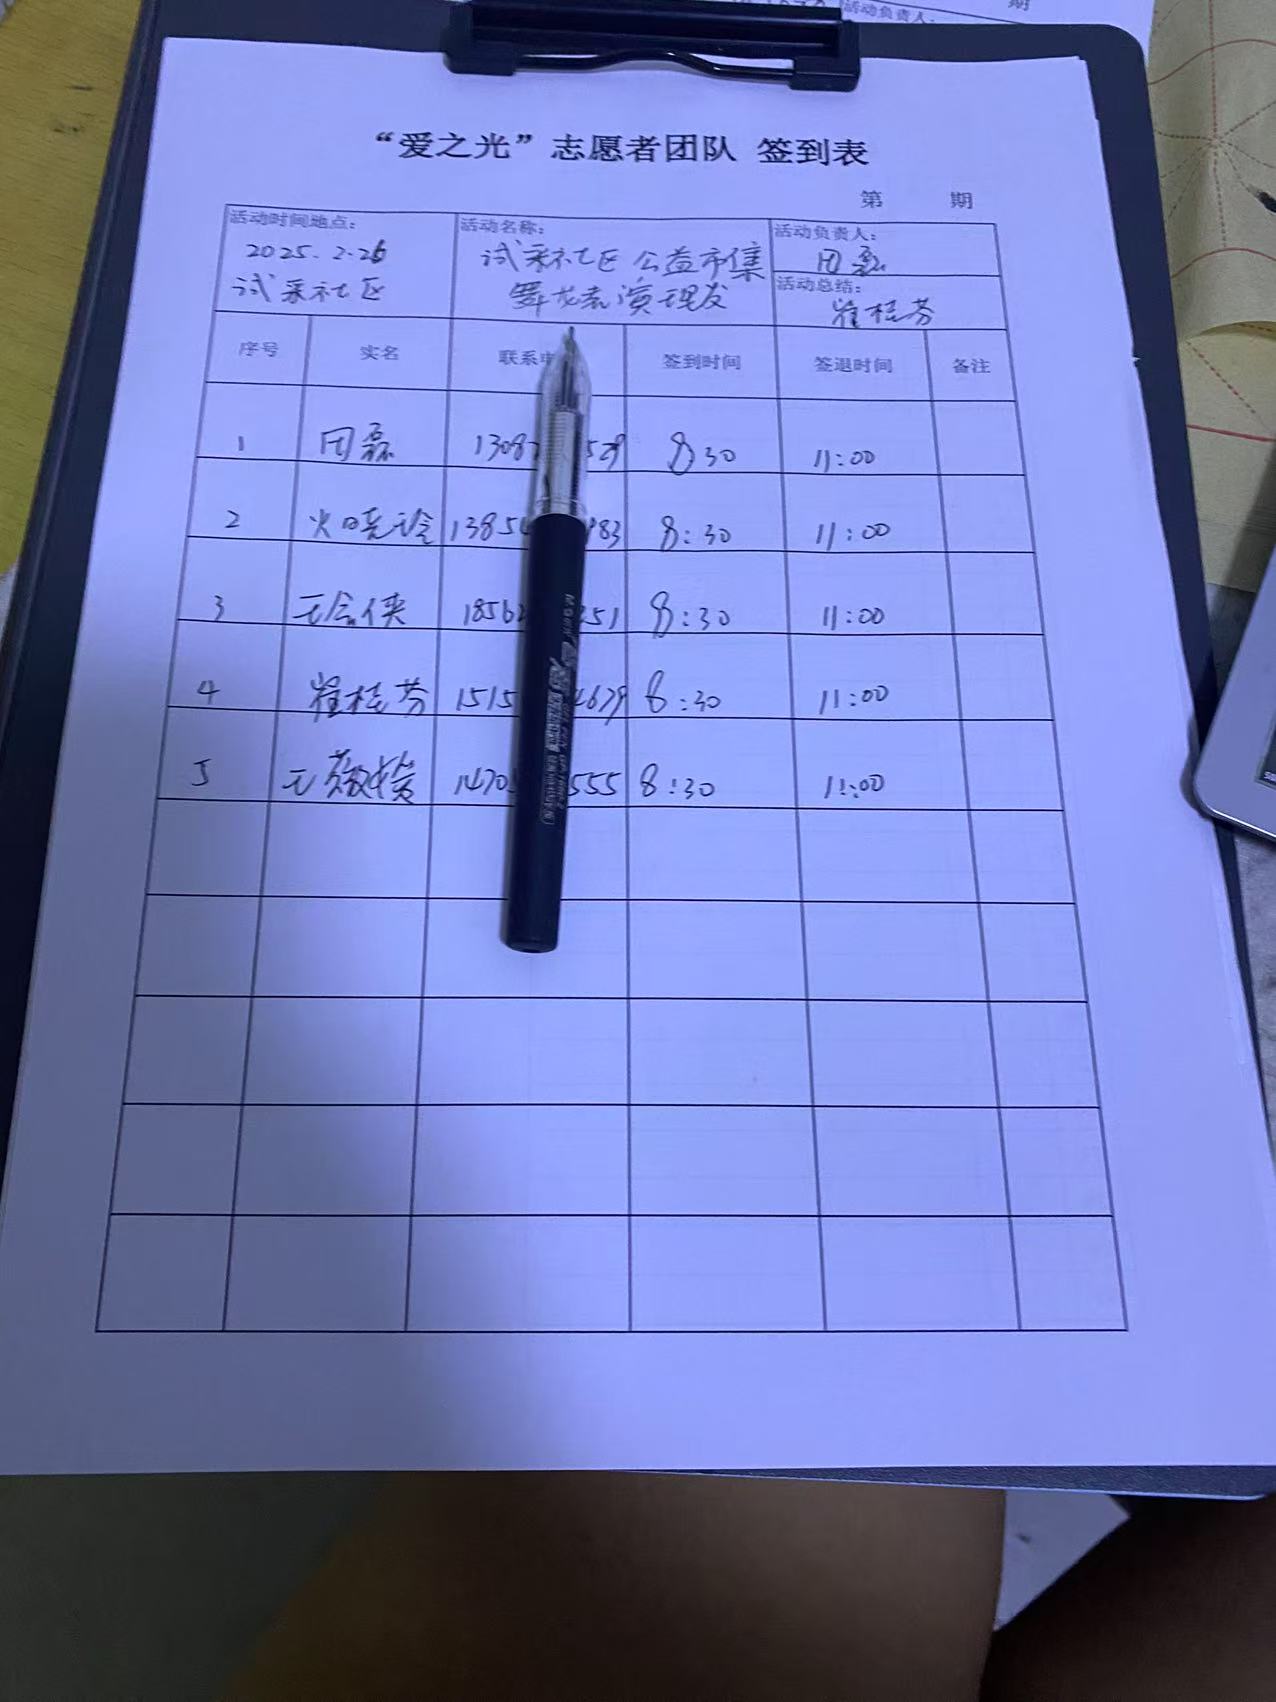 活动负责人:
期
“爱之光”志愿者团队 签到表
第 期
活动时间地点:
2025.2.26
试采社区
活动名称:
试采社区公益市集
舞龙表演理发
活动负责人:
田磊
活动总结:
崔桂芬
序号 实名 联系电 签到时间 签退时间 备注
1 田磊 1308 529 830 11:00
2 1385 183 8:30 11:00
3 1856 251 8:30 11:00
4 崔桂芬 1515 4679 8:30 11:00
5 1470 555 8:30 11:00